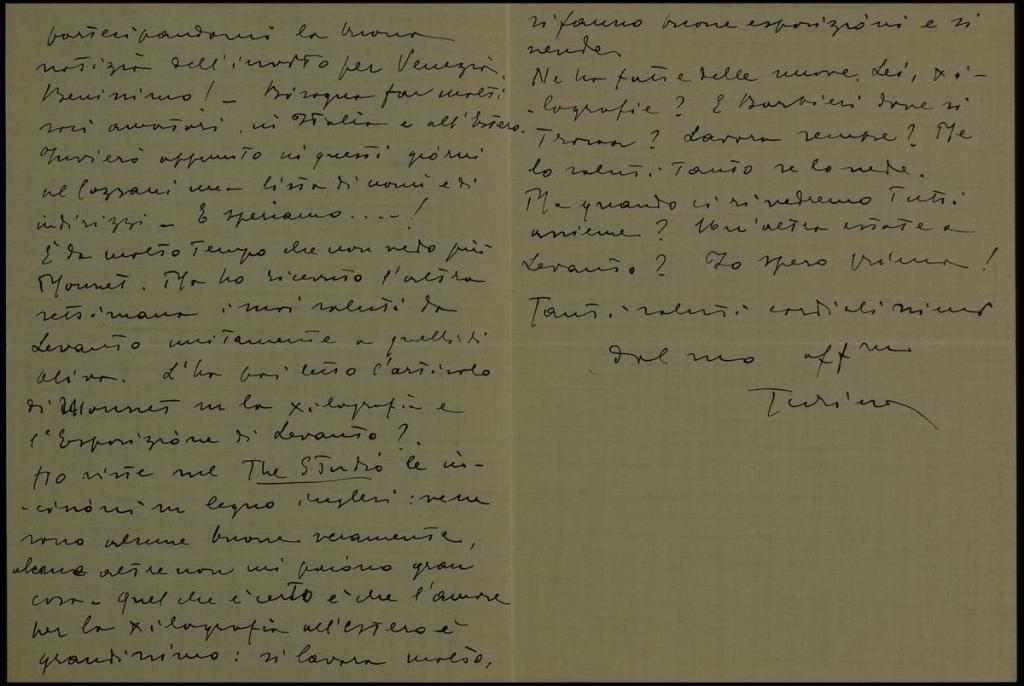 partecipandomi la buona
notizia dell'invito per Venezia.
Benissimo! - Bisogna far molti
soci amatori, in Italia e all'Estero.
Invierò appunto in questi giorni
al Cozzani una lista di nomi e di
indirizzi - E speriamo....!
È da molto tempo che non vedo più
Mounet. Ma ho ricevuto l'altra
settimana i suoi saluti da
Levanto unitamente a quelli di
Oliva. L'ha poi letto l'articolo
di Mounet su la xilografia e
l'Esposizione di Levanto?
Ho viste nel The Studio le in-
-cisioni in legno inglesi: ve ne
sono alcune buone veramente,
alcune altre non mi paiono gran
cosa - Quel che è certo è che l'amore
per la xilografia all'estero è
grandissimo: si lavora molto,
si fanno buone esposizioni e si
vende.
Ne ha fatte delle nuove, Lei, xi-
-lografie? E Barbieri dove si
trova? Lavora sempre? Me
lo saluti tanto se lo vede.
Ma quando ci rivedremo tutti
assieme? Un'altra estate a
Levanto? Io spero prima!
Tanti saluti cordialissimi
dal suo aff mo